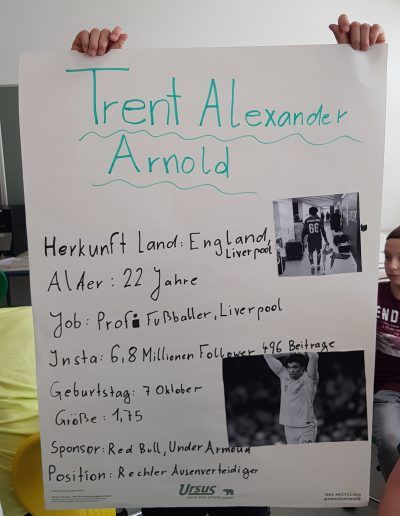 Trent Alexander
Arnold
Herkunft Land: England,
Liverpool
Alter: 22 Jahre
Job: Profi Fußballer, Liverpool
Insta: 6,8 Millionen Follower 496 Beiträge
Geburtstag: 7 Oktober
Größe: 1,75
Sponsor: Red Bull, Under Armoud
Position: Rechter Ausenverteidiger
Ursus
66
100% RECYCLING
premiumweiß